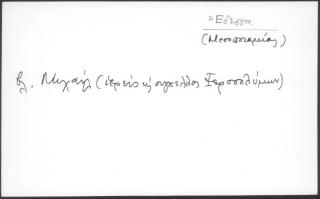 Ἔδεσσα
(Μεσοποταμίας)
βλ. Μιχαὴλ (ἱερεὺς κ̀ σύγκελλος Ἱεροσολύμων)